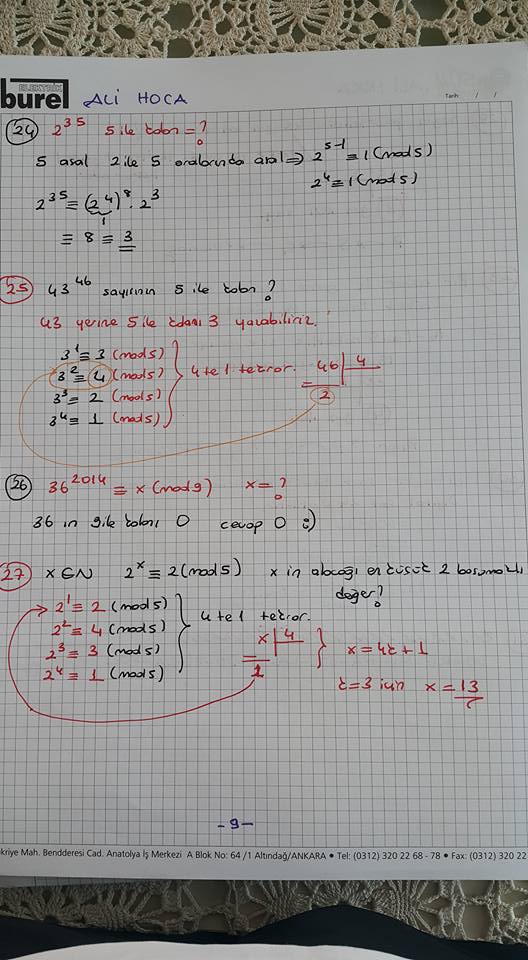 ELEKTRİK
burel ALİ HOCA
Tarih: / /
24 2^35 5 ile kalan = ?
5 asal 2 ile 5 aralarında asal ⇒ 2^(5-1) ≡ 1 (mod 5)
2^4 ≡ 1 (mod 5)
2^35 ≡ (2^4)^8 . 2^3
1
≡ 8 ≡ 3
25 43^46 sayısının 5 ile kalan ?
43 yerine 5 ile kalanı 3 yazabiliriz.
3^1 ≡ 3 (mod 5)
3^2 ≡ 4 (mod 5) } 4 te 1 tekrar. 46 | 4
3^3 ≡ 2 (mod 5) 2
3^4 ≡ 1 (mod 5)
26 36^2014 ≡ x (mod 9) x = ?
36 ın 9 ile kalanı 0 cevap 0 :)
27 x ∈ N 2^x ≡ 2 (mod 5) x in alacağı en küçük 2 basamaklı
değer ?
2^1 ≡ 2 (mod 5)
2^2 ≡ 4 (mod 5) } 4 te 1 tekrar.
2^3 ≡ 3 (mod 5) x | 4 } x = 4k + 1
2^4 ≡ 1 (mod 5) 1
k = 3 için x = 13
- 9 -
kriye Mah. Bendderesi Cad. Anatolya İş Merkezi A Blok No: 64 /1 Altındağ/ANKARA • Tel: (0312) 320 22 68 - 78 • Fax: (0312) 320 22